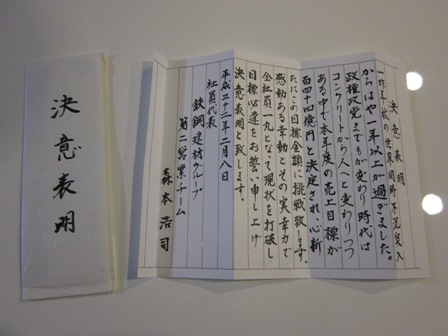 決意表明
決意表明
一昨年秋の世界同時不況突入
からはや一年以上が過ぎました。
政権政党までもが変わり時代は
コンクリートから人へと変わりつつ
ある中で本年度の売上目標が
百四十四億円と決定され心新
たにこの目標金額に挑戦致します。
感動ある行動とその実行力で
全社員一丸となって現状を打破し
目標必達をお誓い申し上げ
決意表明と致します。
平成二十二年二月八日
社員代表
鉄鋼建材グループ
第二営業チーム
森本浩司